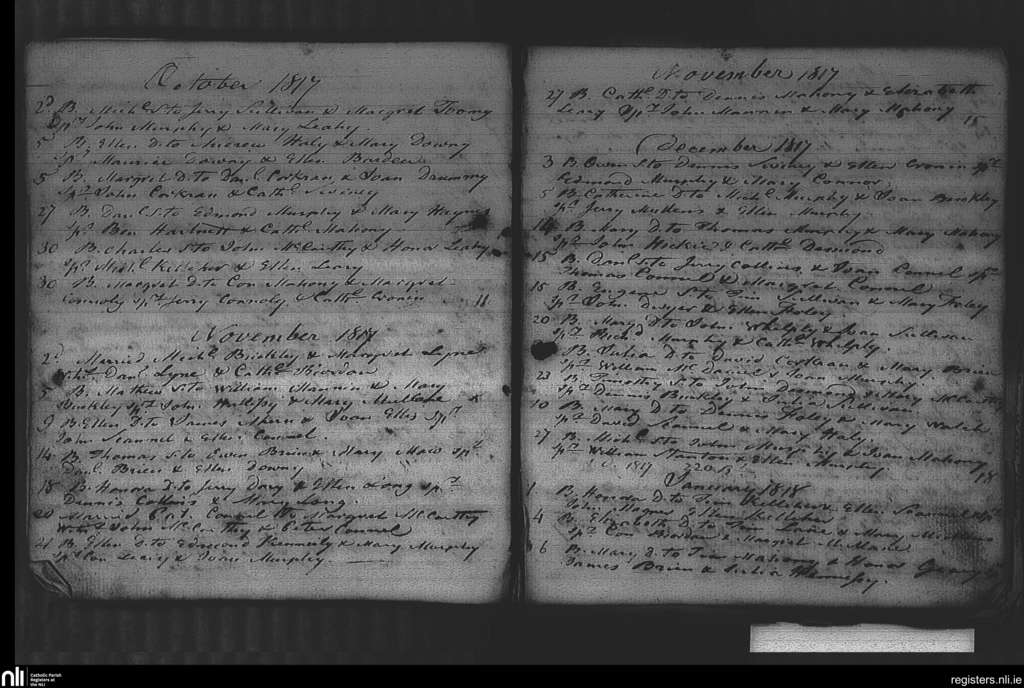 October 1817
2d B. Michl. S. to Jerry Sullivan & Margret Toomy
Sprs. John Murphy & Mary Leahy
5 B. Ellen D. to Haly & Mary Downy
Sprs. Maurice Downy & Ellen
5 B. Margret D. to Danl. Corkran & Joan Drummy
Sprs. John Corkran & Cathe. Swiney
27 B. Danl. S. to Edmond Murphy & Mary Haynes
Sprs. Hartnett & Cathe. Mahony
30 B. Charles S. to John McCarthy & Honor Leahy
Sprs. Michl. Kelleher & Ellen Leary
30 B. Margret D. to Con Mahony & Margret
Connoly Sprs. Jerry Connoly, Cathe. Cronin 11
November 1817
2d Married Michl. Buckley & Margret Lyne
Danl. Lyne & Cathe. Riordan
5 B. Mathew S. to William Mannix & Mary
Buckley Sprs. John & Mary
9 B. Ellen D. to James Ahern & Joan Ellis Sprs.
John Scannel & Ellen Connel.
14 B. Thomas S. to Owen Brien & Mary Sprs.
Danl. Brien & Ellen Downy
18 B. Honora D. to Jerry Dory & Ellen Long Sprs.
Dennis Collins & Mary Long.
20 Married Pat. Connel to Margret McCarthy
John McCarthy & Peter Connel
21 B. Ellen D. to Edmond Kennedy & Mary Murphy
Sprs. Con Leary & Joan Murphy.
November 1817
27 B. Cathe. D. to Dennis Mahony & Elizabeth
Leary Sprs. John Mannix & Mary Mahony 15
December 1817
3 B. Owen S. to Dennis Swiney & Ellen Cronin Sprs.
Edmond Murphy & Mary Connor
5 B. Catherine D. to Michl. Murphy & Joan Buckley
Sprs. Jerry Mullens & Ellen Murphy.
14 B. Mary D. to Thomas Murphy & Mary Mahony
Sprs. John Hickie & Cathe. Desmond
15 B. Danl. S. to Jerry Collins & Joan Connel Sprs.
Thomas Connel & Margret Connel
15 B. Eugene S. to Tim Sullivan & Mary Foley
Sprs. John Dwyer & Ellen Foley.
20 B. Mary D. to John Whelply & Joan Sullivan
Sprs. Richd. Murphy & Cathe. Whelply.
B. Julia D. to David Corkran & Mary Brien
Sprs. William McDaniel & Joan Murphy.
23 B. Timothy S. to John Desmond & Mary McCarthy
Sprs. Dennis Buckley & Julia Sullivan
B. Mary D. to Dennis Haly & Mary Walsh
Sprs. David Scannel & Mary Haly.
27 B. Michl. S. to John Murphy & Joan Mahony
Sprs. William Stanton & Ellen Murphy 18
1817
January 1818
1 B. Honora D. to Tim Kelleher & Ellen Scannel Sprs.
John & Ellen Kelleher
4 B. Elizabeth D. to Tim & Mary
Sprs. Con Riordan & Margret
6 B. Mary D. to Tim Mahony & Honor Geany
James Brien & Julia Hennessy.
nli
Catholic Parish
Registers at
the NLI
registers.nli.ie